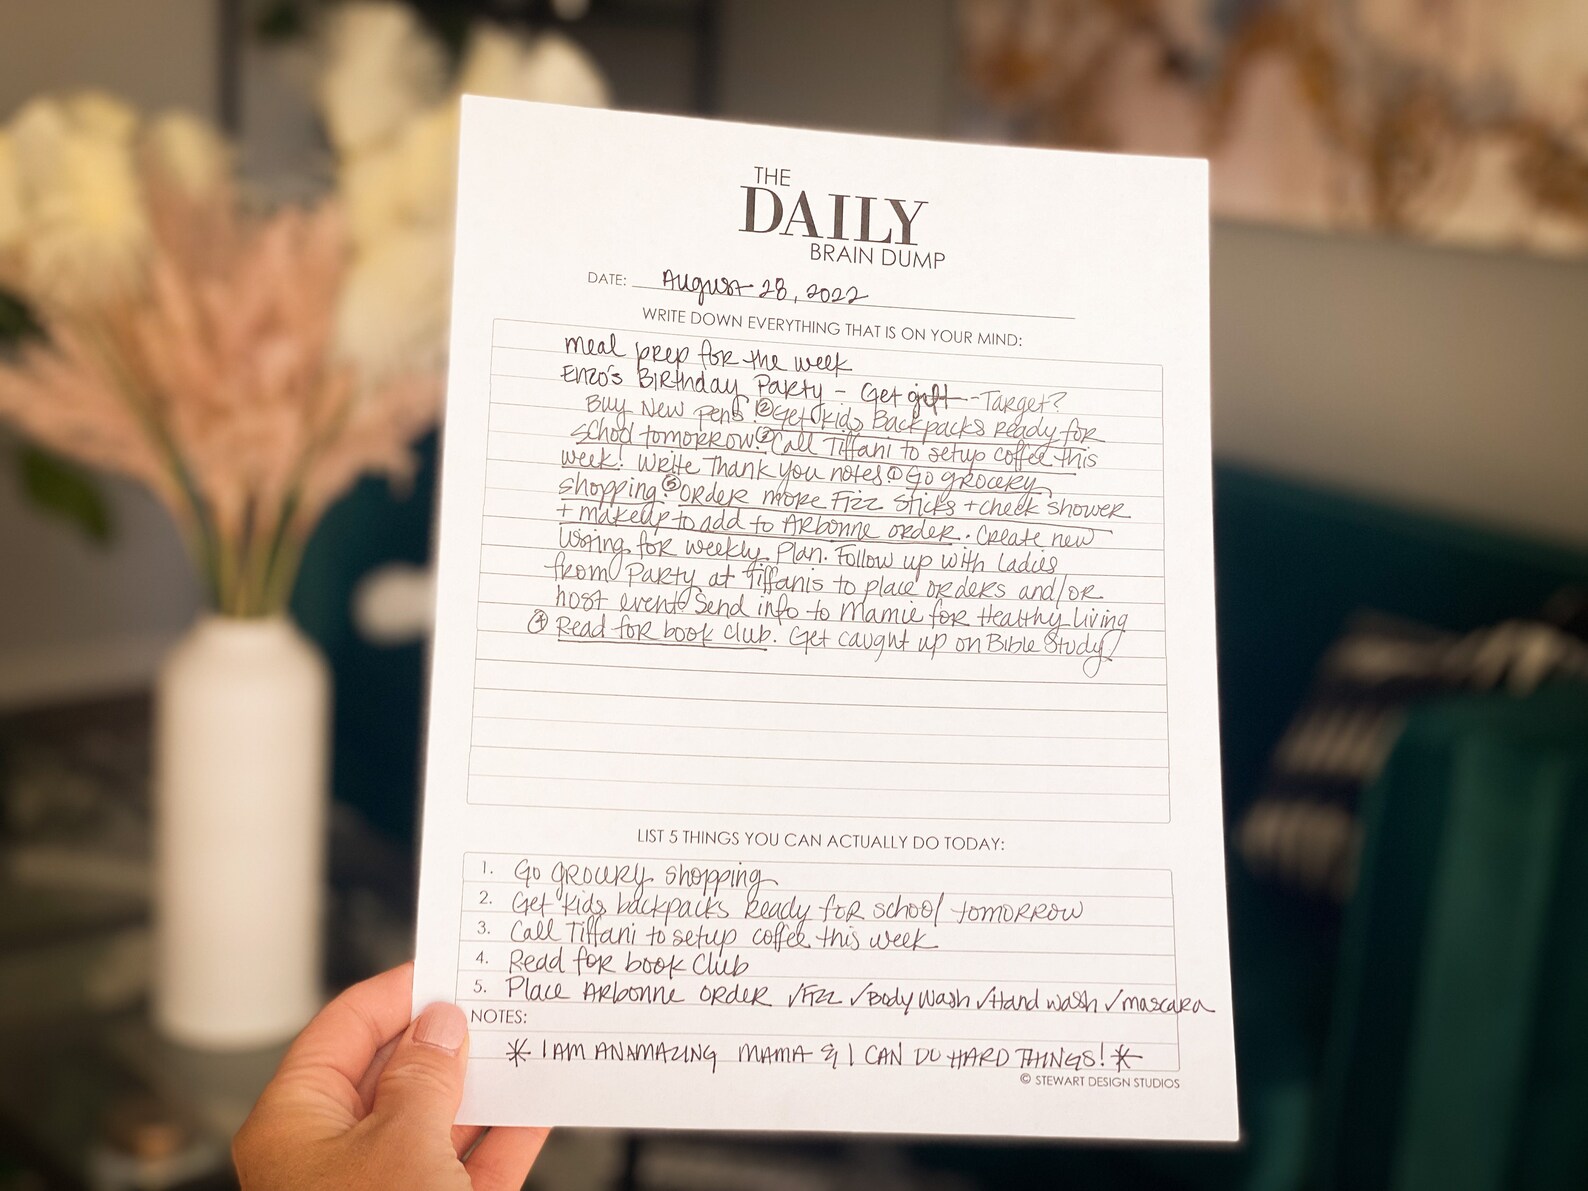 THE
DAILY
BRAIN DUMP
DATE: August 28, 2022
WRITE DOWN EVERYTHING THAT IS ON YOUR MIND:
meal prep for the week
Enzo's Birthday Party - Get gift -- Target?
Buy New pens! ② Get kids Backpacks Ready for
school tomorrow ③ Call Tiffani to setup coffee this
week! Write Thank you notes ① Go grocery
shopping! ⑤ order more Fizz Sticks + check shower
+ makeup to add to Arbonne order. Create new
for weekly Plan. Follow up with Ladies
from Party at Tiffanis to place orders and/or
host event Send info to Mamie for Healthy Living
④ Read for book club. Get caught up on Bible Study!
LIST 5 THINGS YOU CAN ACTUALLY DO TODAY:
1. Go grocery shopping
2. Get kids backpacks Ready for school tomorrow
3. Call Tiffani to setup coffee this week
4. Read for book Club
5. Place Arbonne order ✓Fizz ✓Body Wash ✓Hand wash ✓mascara
NOTES:
* I AM AN AMAZING MAMA & I CAN DO HARD THINGS! *
© STEWART DESIGN STUDIOS